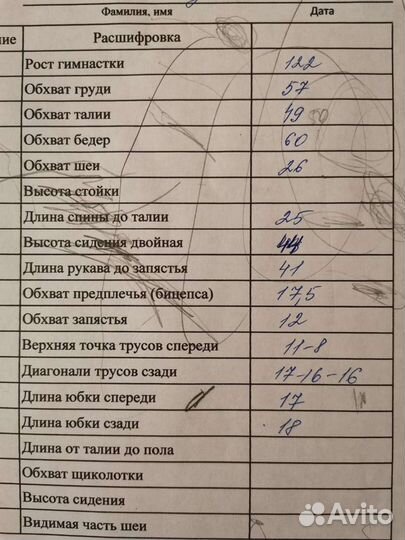 Фамилия, имя Дата
ние Расшифровка
Рост гимнастки 122
Обхват груди 57
Обхват талии 49 50
Обхват бедер 60
Обхват шеи 26
Высота стойки
Длина спины до талии 25
Высота сидения двойная 44
Длина рукава до запястья 41
Обхват предплечья (бицепса) 17,5
Обхват запястья 12
Верхняя точка трусов спереди 11-8
Диагонали трусов сзади 17-16-16
Длина юбки спереди 17
Длина юбки сзади 18
Длина от талии до пола
Обхват щиколотки
Высота сидения
Видимая часть шеи
Avito